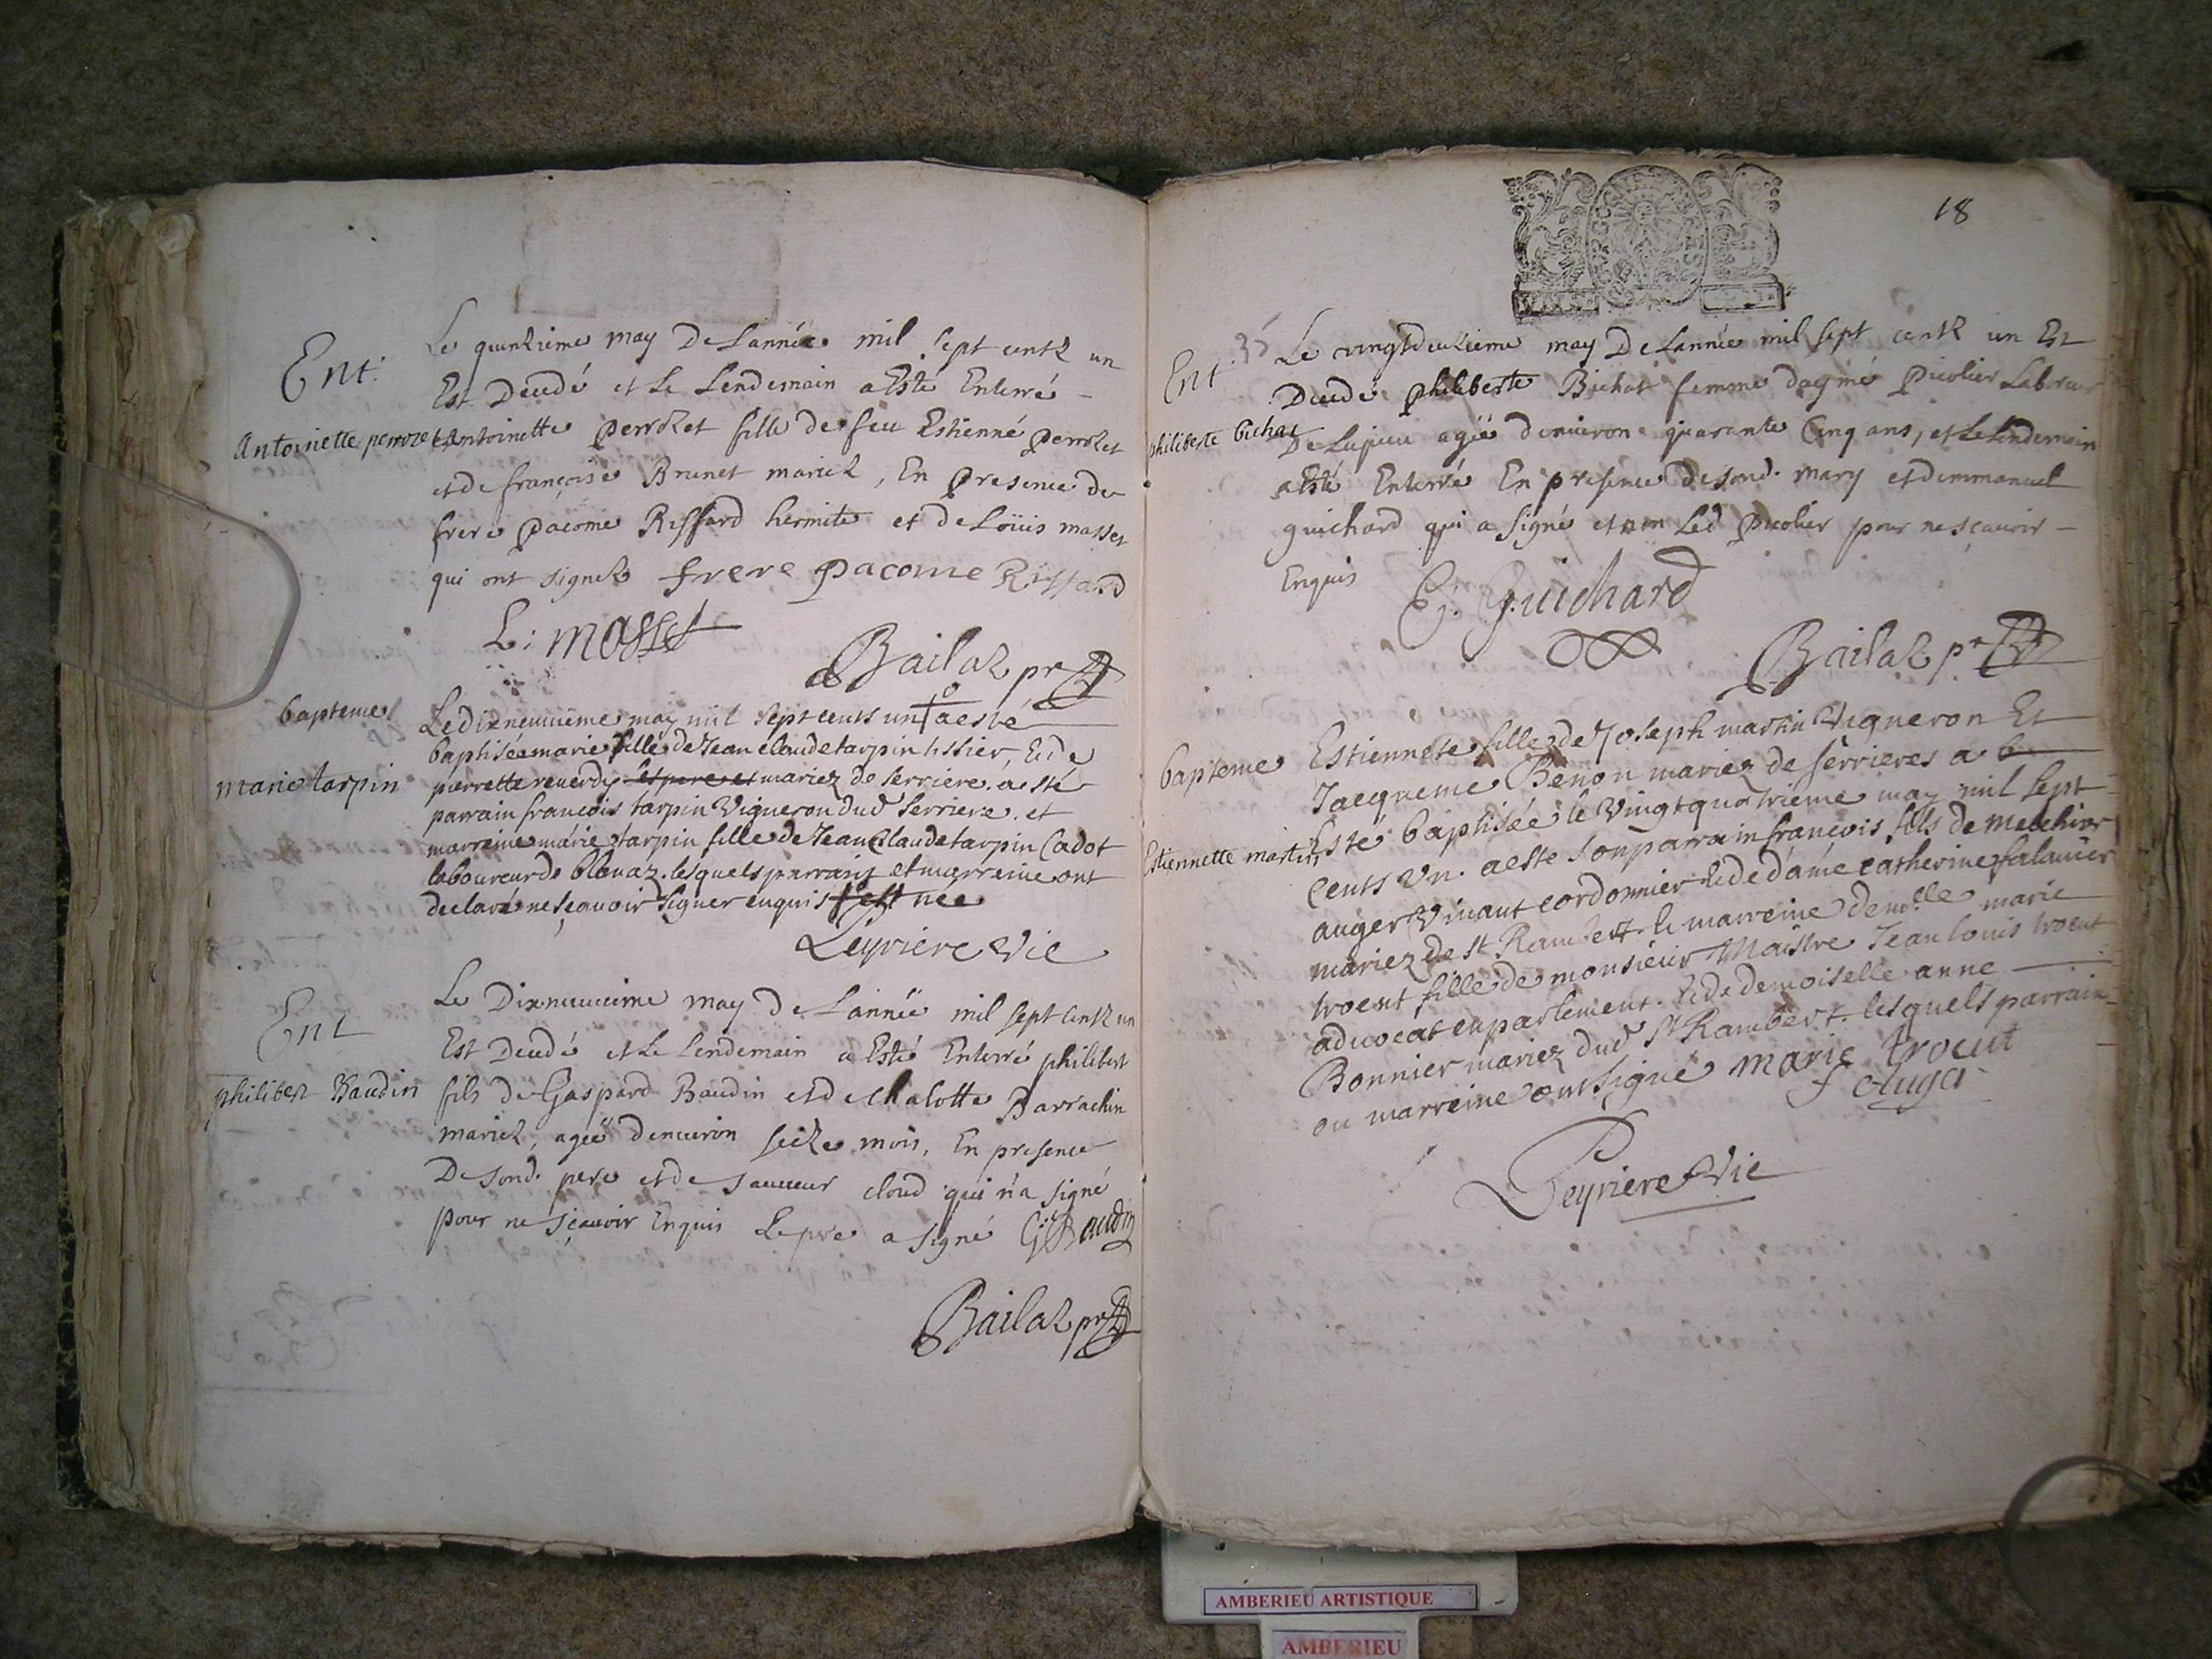 Ent.
Antoinette perrozet
Le quinzieme may De Lannée mil sept centz un
Est Decedé et Le Lendemain a Esté Enterré -
Antoinette Perrozet fille de feu Estienne Perrozet
et de françoise Brunet mariez, En Presence de
frere Pacome Riffard hermite et de Loüis masset
qui ont signez frere Pacome Riffard
L: masset
Bailaz pr
bapteme
marie tarpin
Le dixneuuieme may mil sept cents un a esté
baptisée marie fille de Jean claude tarpin tissier, Et de
pierrette reuerdy mariez de serriere. a esté
parrain francois tarpin Vigneron dud serriere. et
marreine marie tarpin fille de Jean Claude tarpin Cadot
laboureur de blanaz. lesquels parrain et marreine ont
declaré ne sçauoir signer enquis est née
Leyriere Vic
Ent
philibert Baudin
Le Dixneuuieme may De L'année mil sept centz un
Est Decedé et Le Lendemain a Esté Enterré philibert
fils de Gaspard Baudin et de chalotte Barrachin
mariez, agée denuiron seize mois, En presence
De sond. pere et de sauueur cloud qui n'a signé
pour ne sçauoir Enquis Le pre a signé G: Baudin
Bailaz pr
18
Ent.
philiberte bichat
Le vingtdeuzieme may De Lannée mil sept centz un Est
Decedé Philiberte Bichat femme daymé Picolier Laboreur
De Lupieu agée denuiron quarante Cinq ans, et Le Lendemain
a Esté Enterré En presence de sond. mary et demmanuel
guichard qui a signé et non Led Picolier pour ne sçauoir -
Enquis
E. Guichard
Bailaz pr
bapteme
Estiennette martin
Estiennete fille de Joseph martin Vigneron Et
Jacqueme Benon mariez de serrieres a
Esté baptisée le Vingtquatrieme may mil sept
cents Vn. a esté son parrain francois fils de Melchior
auger Viuant cordonnier Et de dame catherine falauier
mariez de st Rambert. Et marreine demolle marie
trocut fille de monsieur Maistre Jean louis trocut
aduocat en parlement. Et de demoiselle anne
Bonnier mariez dud st Rambert. lesquels parrain
ou marreine ont signé marie trocut
f Auger
Leyriere Vic
AMBERIEU ARTISTIQUE
AMBERIEU